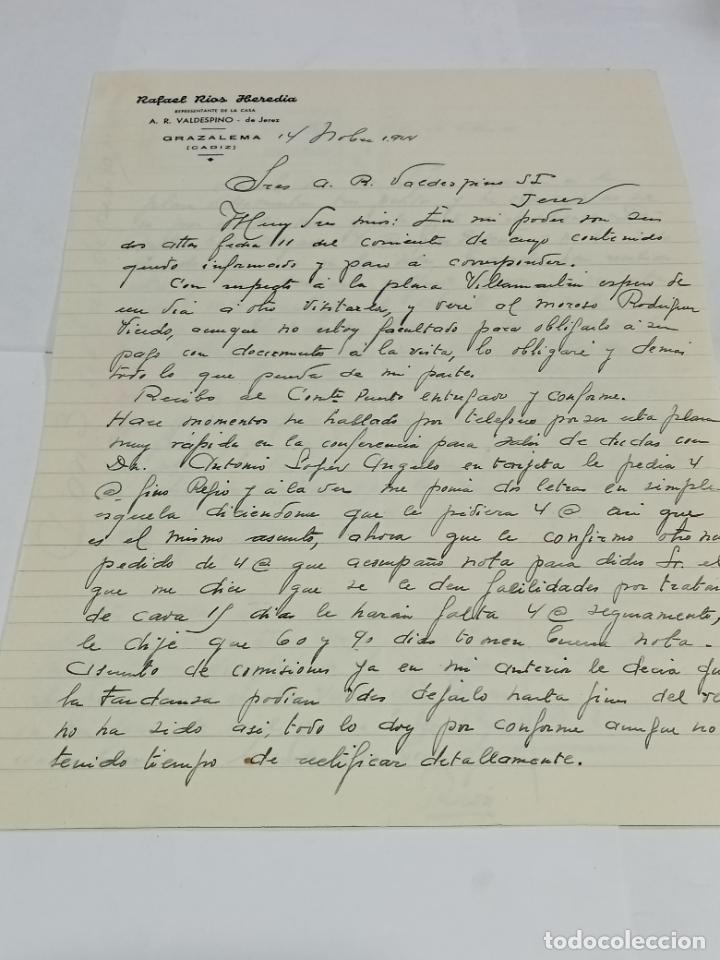 Rafael Rios Heredia
REPRESENTANTE DE LA CASA
A. R. VALDESPINO - de Jerez
GRAZALEMA
(CADIZ)
14
Sres A. R. Valdespino
Jerez
Muy Sres mios: En mi poder son sus
dos attas fecha 11 del corriente de cuyo contenido
quedo informado y paso á corresponder.
Con respecto á la plaza Villamartin espero de
un dia á otro visitarla, y veré al moroso Rodriguez
Viendo, aunque no estoy facultado para obligarlo á su
pago con documento á la vista, lo obligaré y demas
todo lo que pueda de mi parte.
Recibo de entregado y conforme.
Hace momentos he hablado por telefono por ser esta plaza
muy rápida en la conferencia para salir de dudas con
Dn. Antonio Lopez Angulo en tarjeta le pedia 4
@ fino y á la vez me ponia dos letras en simple
esquela diciendome que le pidiera 4 @ asi que
es el mismo asunto, ahora que le confirmo otro
pedido de 4 @ que acompaño nota para dicho Sr. el
que me dice que se le den facilidades por tratar
de cada 15 dias le harán falta 4 @ seguramente,
le dije que 60 y 90 dias tomen buena nota.
Asunto de comisiones ya en mi anterior le decia que
la Fardanza podian Vdes dejarlo hasta fines del
no ha sido asi, todo lo doy por conforme aunque no
tenido tiempo de rectificar detallamente.
todocoleccion.net